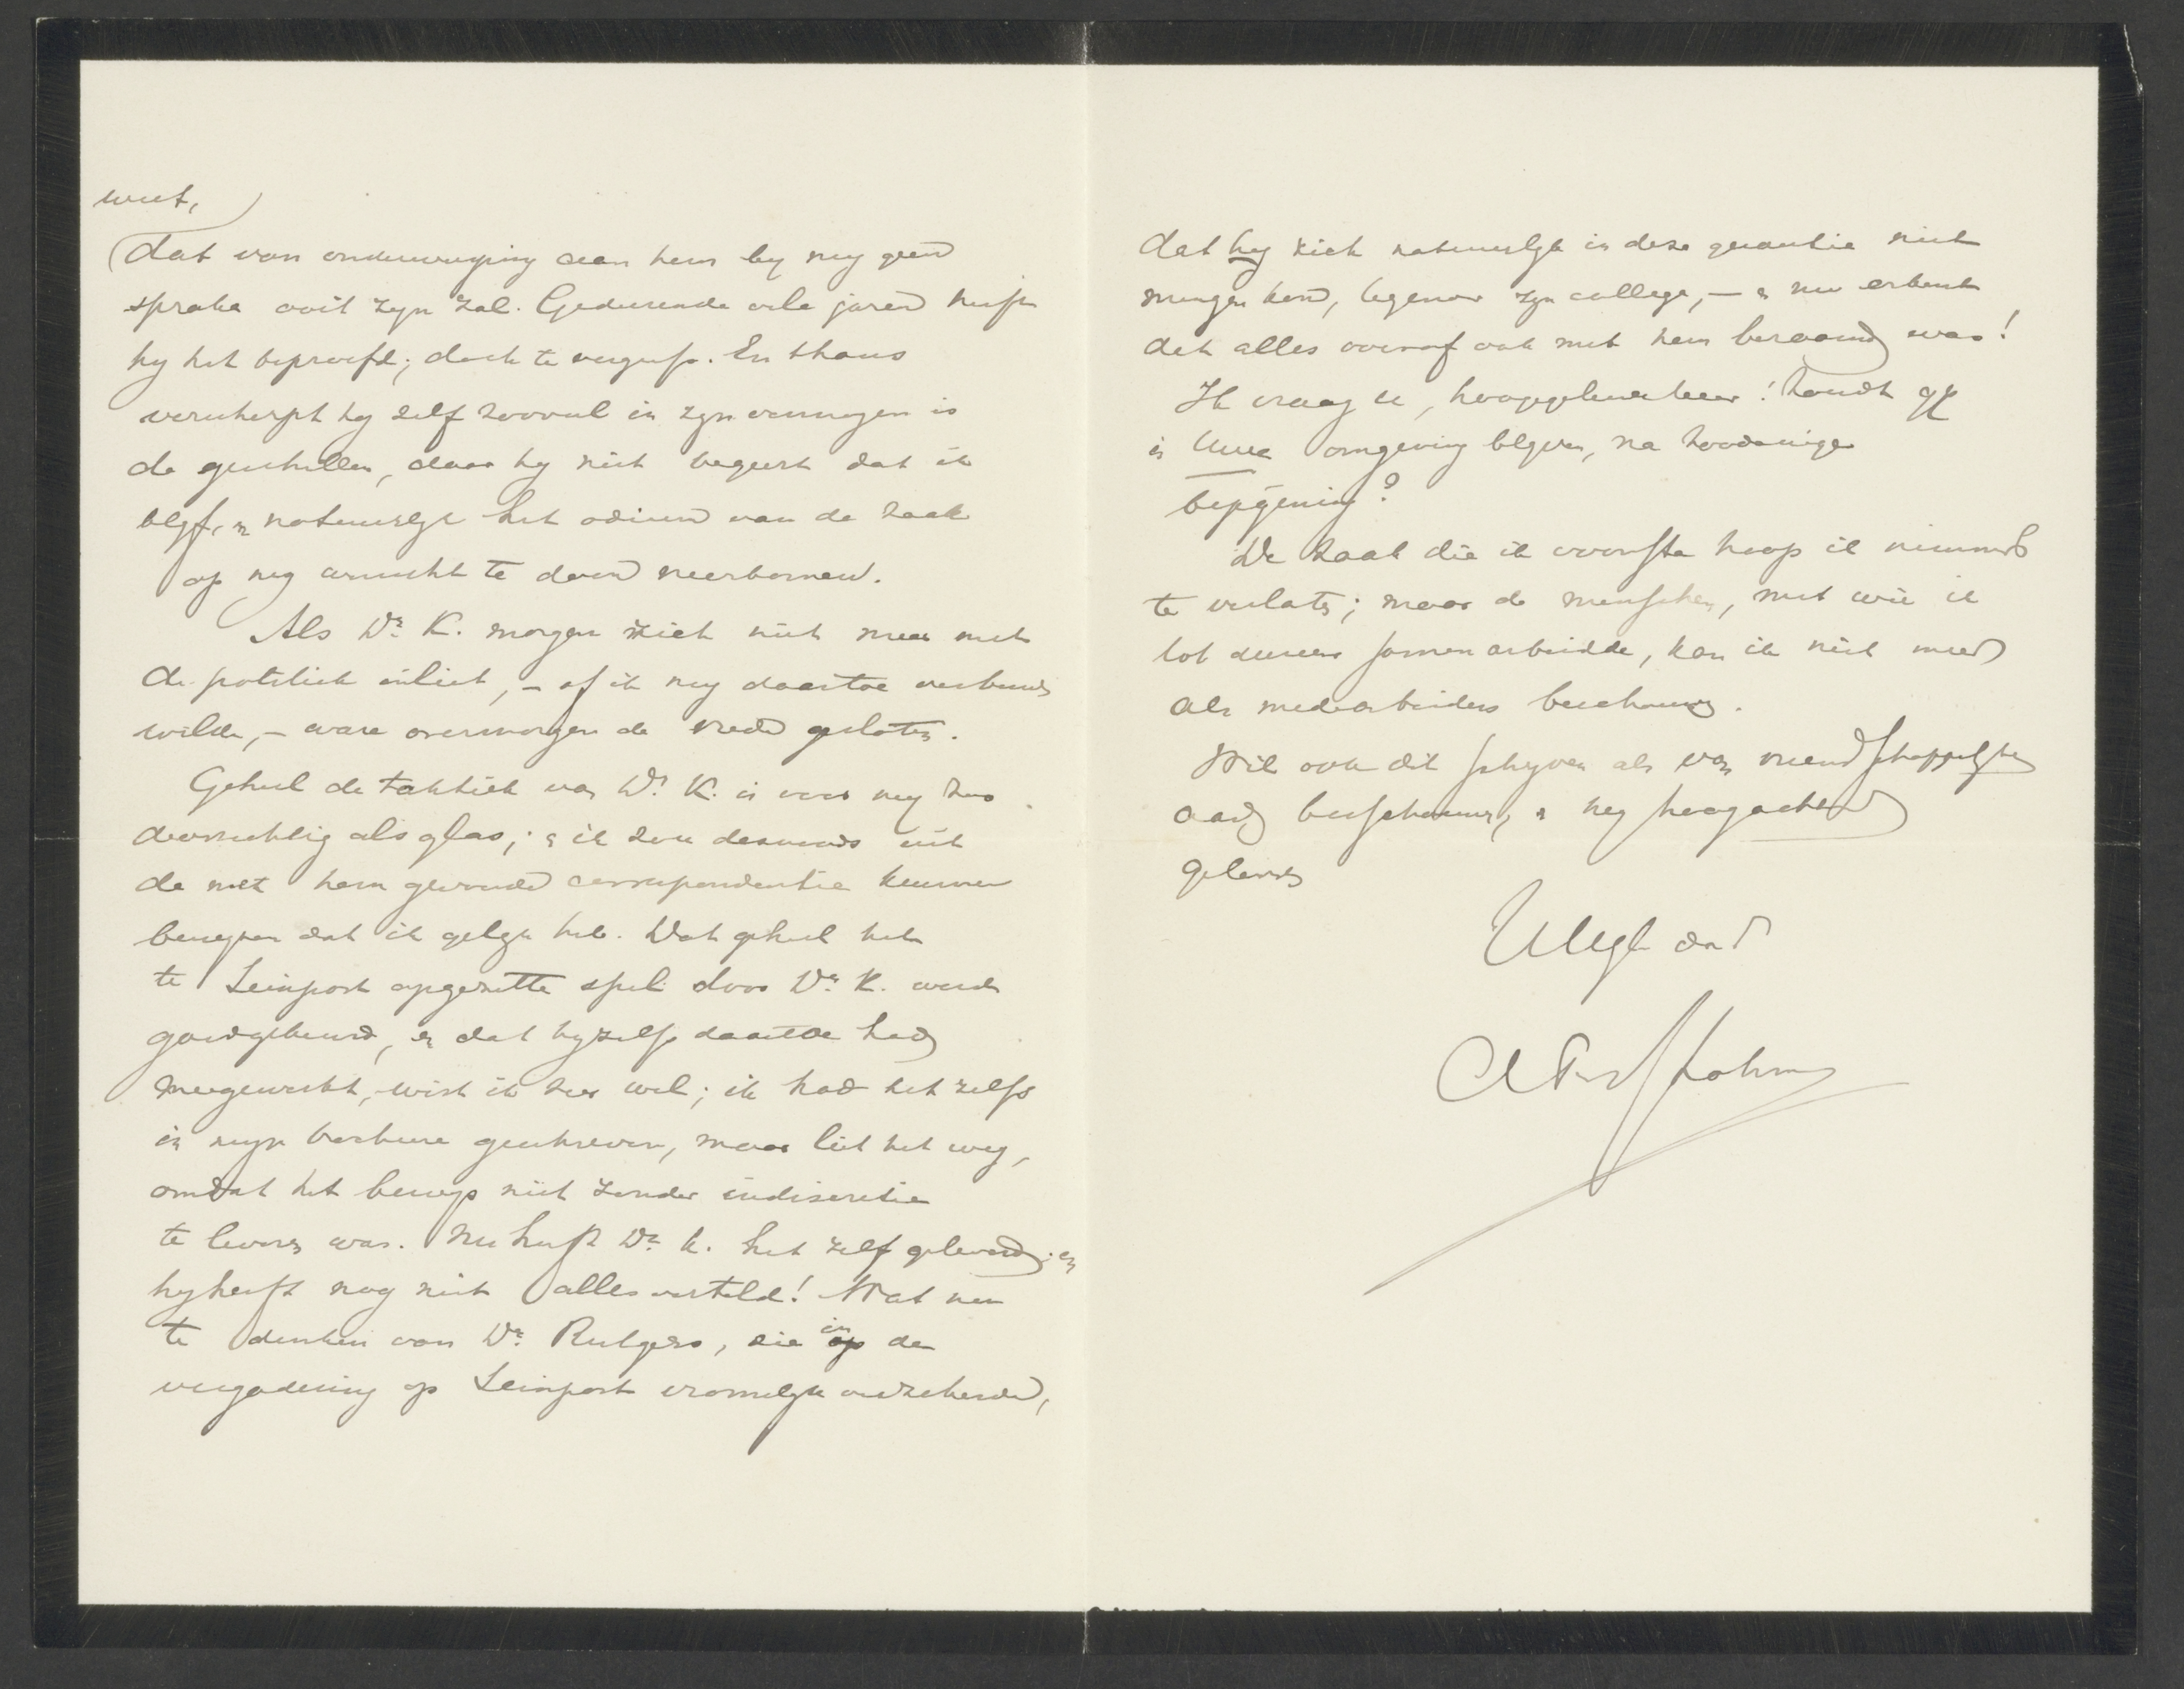 weet,
dat van onderwerping aan hem by my geen
sprake ooit zyn zal. Gedurende vele jaren heeft
hy het beproefd; doch te vergeefs. En thans
verscherpt hy zelf zooveel in zyn vermogen is
de geschillen, daar hy niet begeert dat ik
blyf, en natuurlyk het odium van de zaak
op my wenscht te doen neerkomen.
Als Dr. K. morgen zich niet meer met
de politiek inliet, – of ik my daartoe verbinden
wilde, – ware overmorgen de vrede gesloten.
Geheel de taktiek van Dr. K. is voor my zoo
doorzichtig als glas; en ik zou desnoods uit
de met hem gevoerde correspondentie kunnen
bewyzen dat ik gelyk heb. Dat geheel het
te Seinpost opgezette spel door Dr. K. werd
goedgekeurd, en dat hyzelf daartoe had
meegewerkt, wist ik zeer wel; ik had het zelfs
in myn brochure geschreven, maar liet het weg,
omdat het bewys niet zonder indiscretie
te leveren was. Nu heeft Dr. K. het zelf geleverd; en
hy heeft nog niet alles verteld! Wat nu
te denken van Dr. Rutgers, die in de
vergadering op Seinpost vromelyk verzekerde,
dat hy zich natuurlyk in deze quaestie niet
mengen kon, tegenover zyn collega, – en nu erkent
dat alles vooraf ook met hem beraamd was!
Ik vraag u, hooggeleerde heer! zoudt gy
in Uwe omgeving blyven, na zoodanige
bejegening?
De zaak die ik voorsta hoop ik nimmer
te verlaten; maar de menschen, met wie ik
tot dusver samen arbeidde, kan ik niet meer
als medearbeiders beschouwen.
Wil ook dit schryven als van vriendschappelyken
aard beschouwen, en my hoogachtend
gelooven
UEdl dnr
AFdeSavLohman